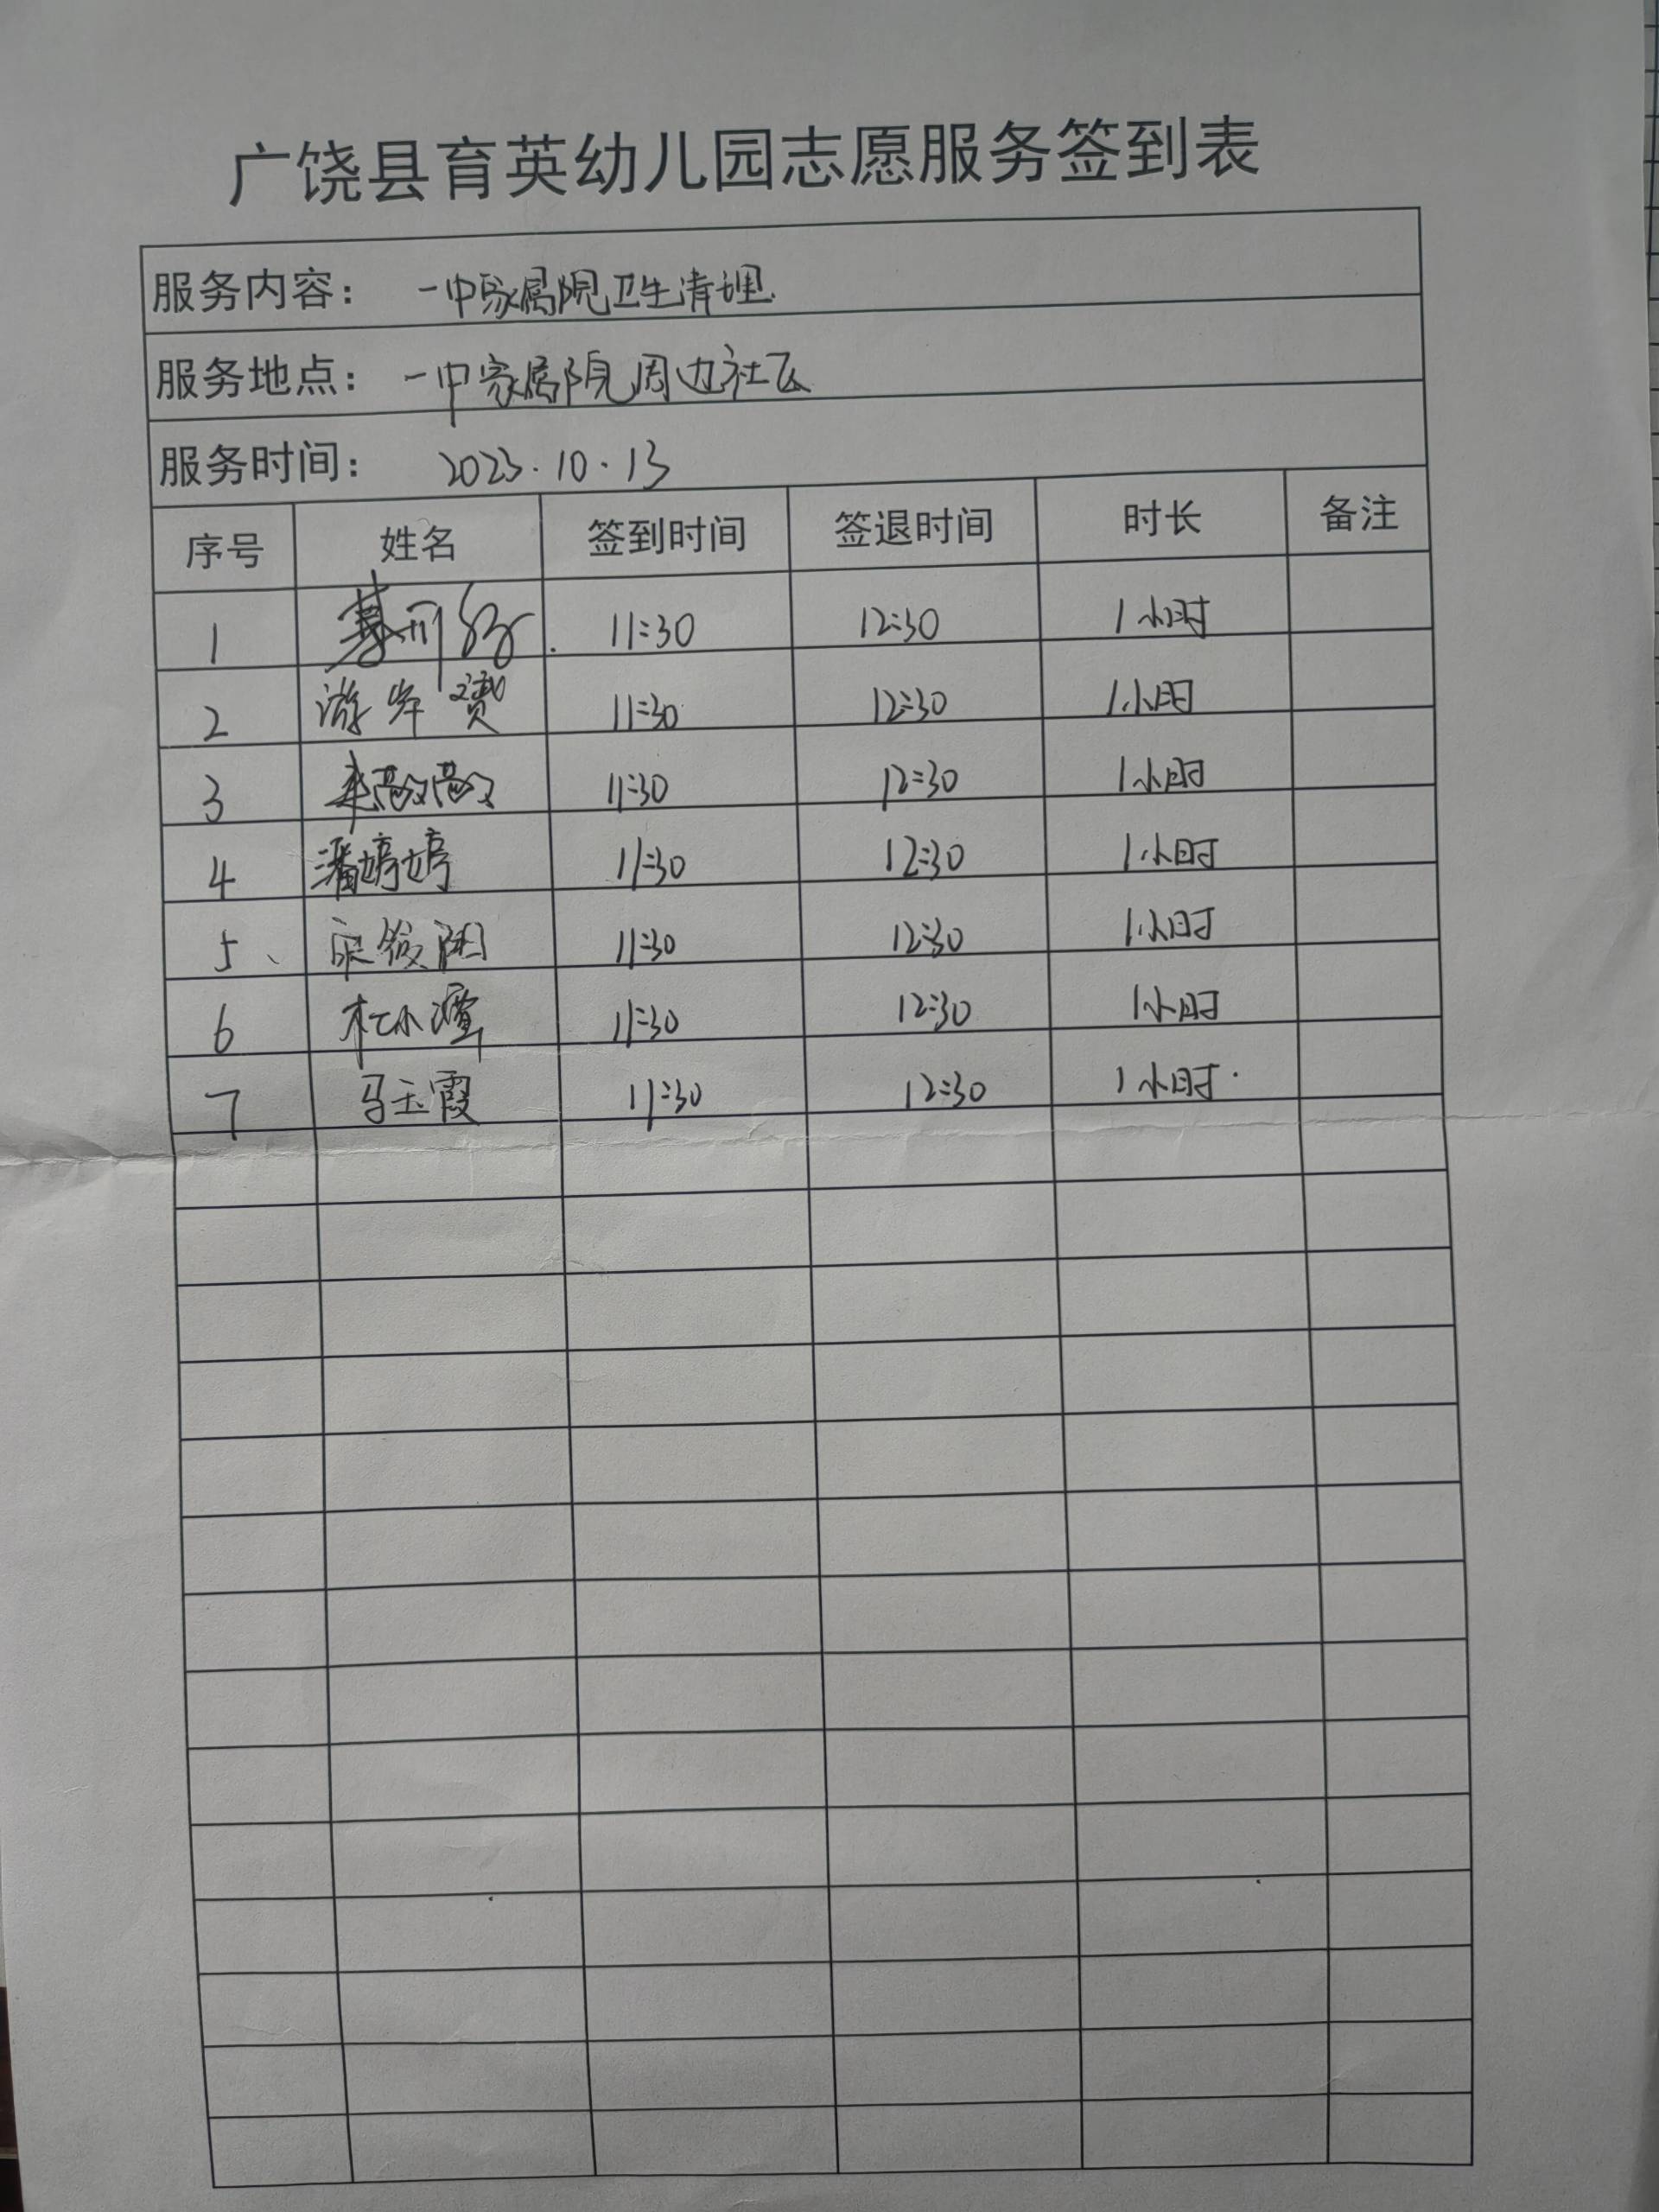 广饶县育英幼儿园志愿服务签到表
服务内容： 一中家属院卫生清理.
服务地点： 一中家属院周边社区
服务时间： 2023.10.13
序号 姓名 签到时间 签退时间 时长 备注
1 11:30 12:30 1小时
2 游岸赟 11:30 12:30 1小时
3 11:30 12:30 1小时
4 潘婷婷 11:30 12:30 1小时
5、 11:30 12:30 1小时
6 杜小 11:30 12:30 1小时
7 马玉霞 11:30 12:30 1小时.